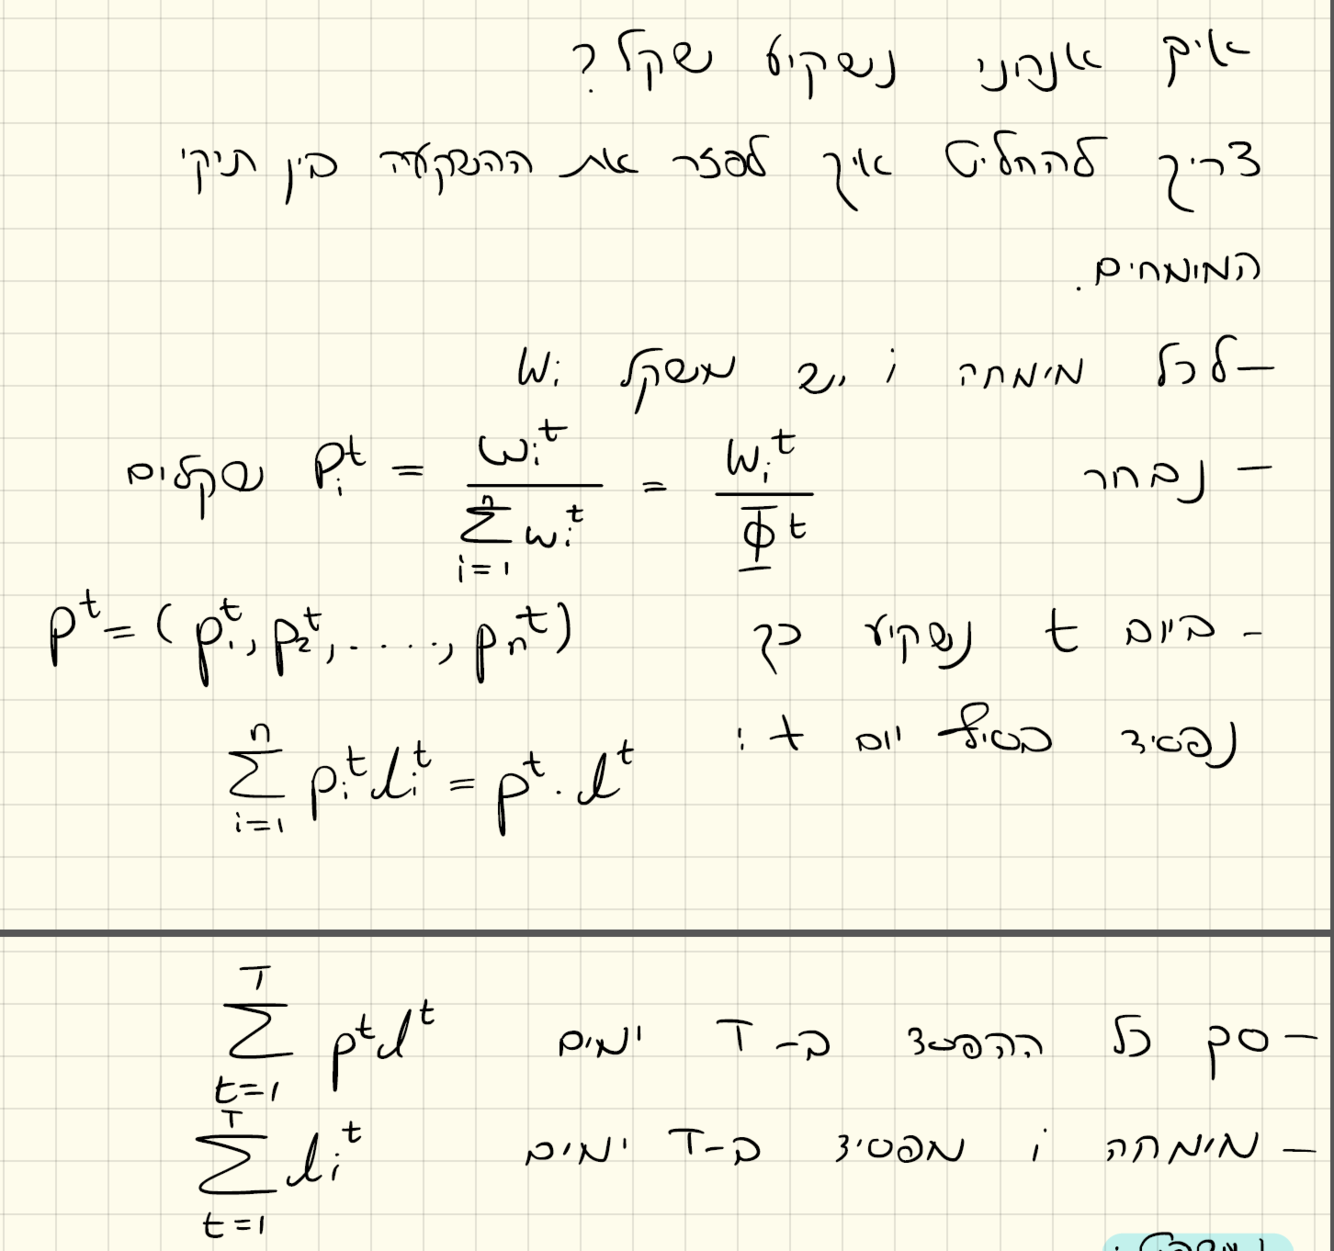 איך אנחנו נשקיע שקל?
צריך להחליט איך לפזר את ההשקעה בין תיקי
המומחים.
- לכל מימחה i יש משקל Wᵢ
- נבחר Pᵢᵗ = wᵢᵗ / Σᵢ₌₁ⁿ wᵢᵗ = Wᵢᵗ / Φᵗ שקלים
- ביום t נשקיע כך Pᵗ = (p₁ᵗ, p₂ᵗ, ...., pₙᵗ)
נפסיד בסוף יום t : Σᵢ₌₁ⁿ pᵢᵗ lᵢᵗ = pᵗ · lᵗ
- סך כל ההפסד ב- T ימים Σₜ₌₁ᵀ pᵗ lᵗ
- מימחה i מפסיד ב-T ימים Σₜ₌₁ᵀ lᵢᵗ